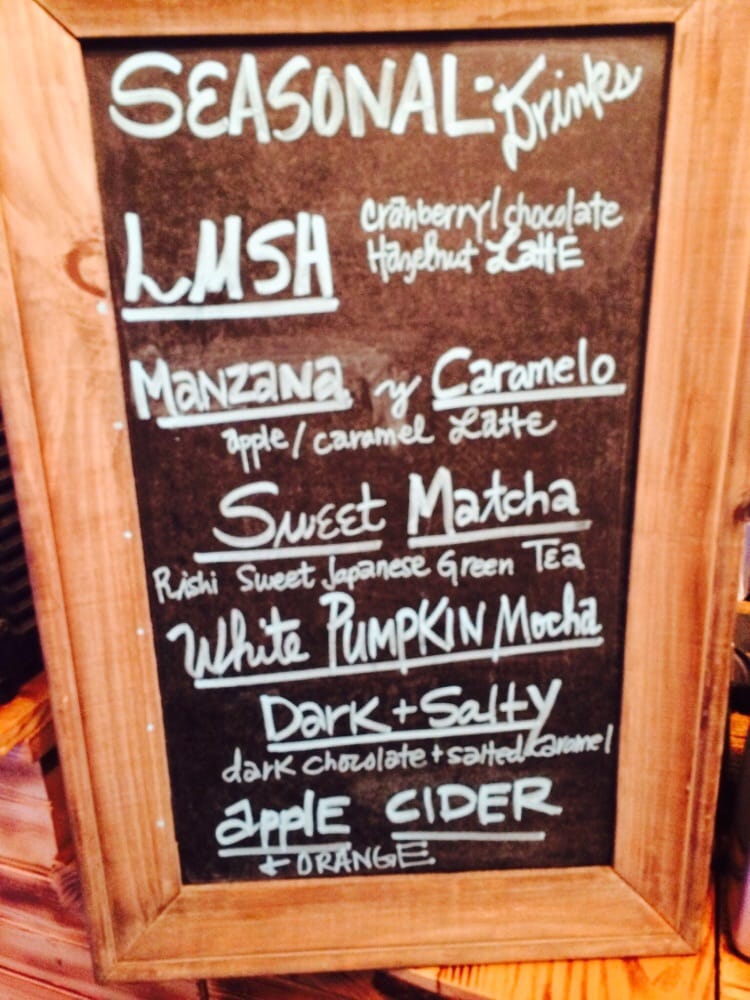 SEASONAL- Drinks
LUSH cranberry/chocolate
Hazelnut LattE
Manzana y Caramelo
apple/caramel Latte
Sweet Matcha
Rishi Sweet Japanese Green Tea
White PUMPKIN Mocha
Dark + Salty
dark chocolate + salted caramel
applE CIDER
+ ORANGE